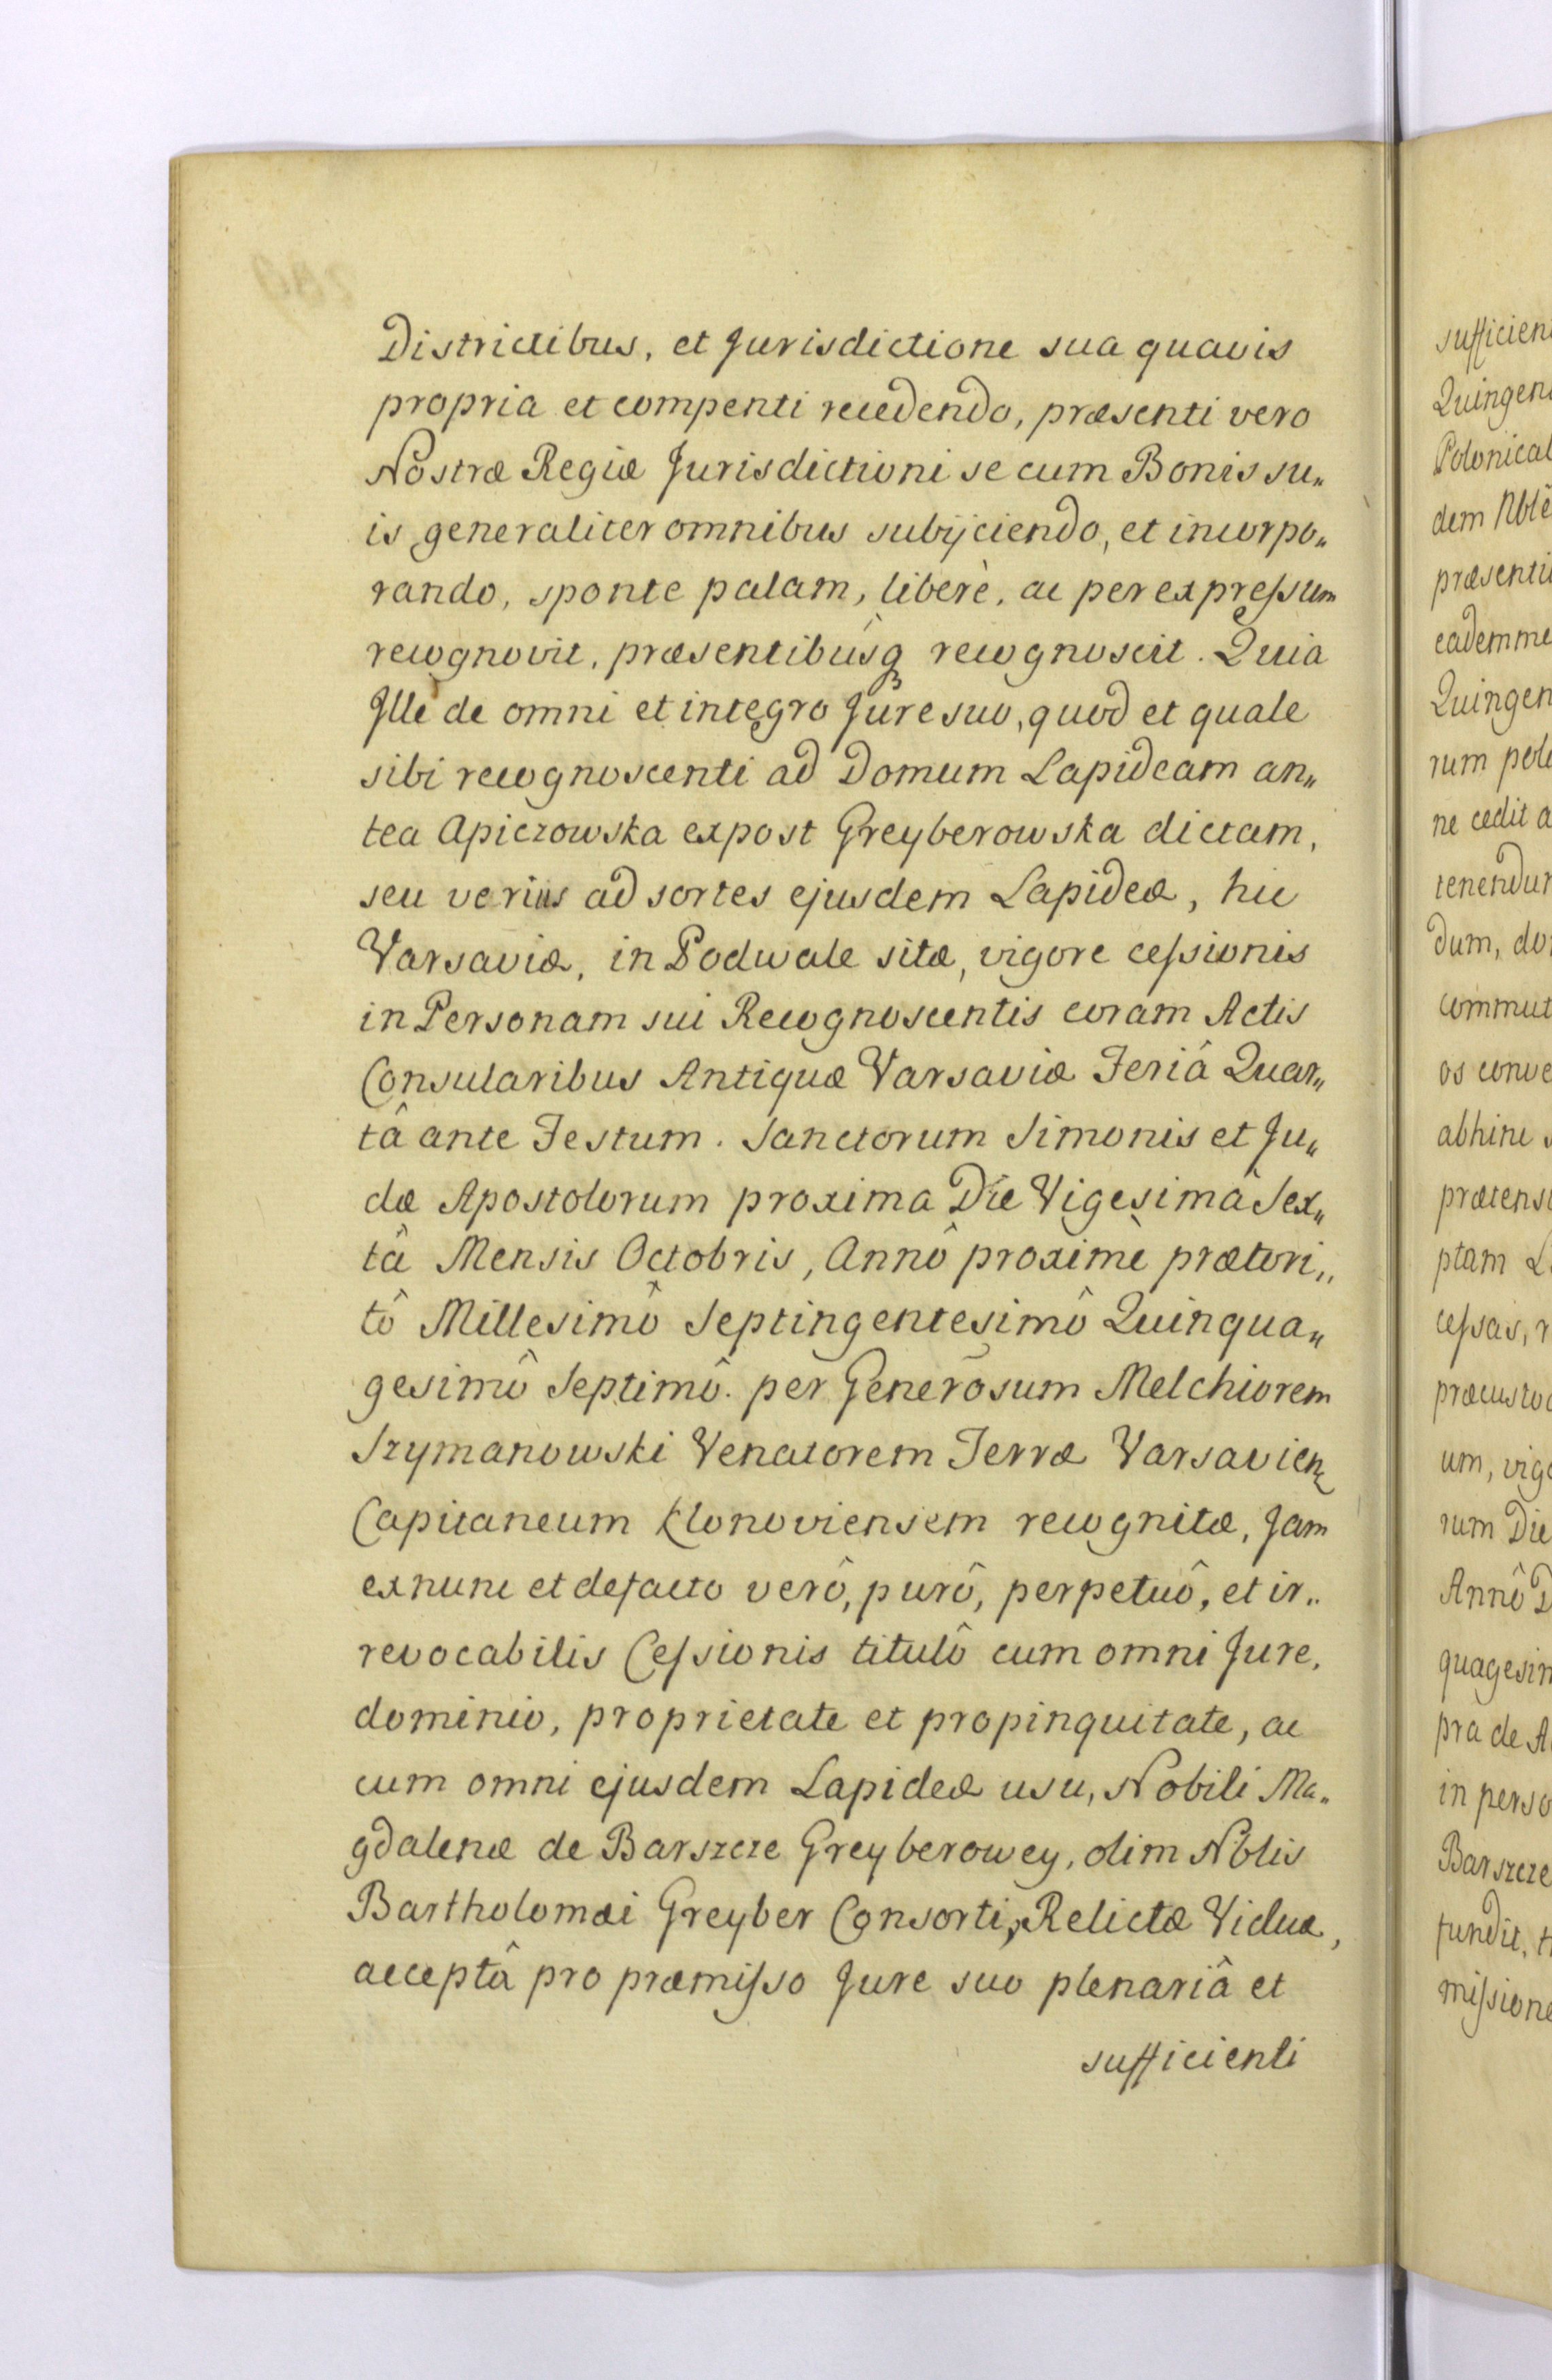 Districtibus, et Jurisdictione sua quavis
propria et compenti recedendo, præsenti vero
Nostræ Regiæ Jurisdictioni se cum Bonis su„
is generaliter omnibus subijciendo, et incorpo„
rando, sponte palam, liberè, ac per expressum
recognovit, præsentibusq recognoscit. Quia
Ille de omni et integro Jure suo, quod et quale
sibi recognoscenti ad Domum Lapideam an„
tea Apiczowska expost Greyberowska dictam,
seu verius ad sortes ejusdem Lapideæ, hic
Varsaviæ, in Podwale sitæ, vigore cessionis
in Personam sui Recognoscentis coram Actis
Consularibus Antiquæ Varsaviæ Feriâ Quar„
tâ ante Festum. Sanctorum Simonis et Ju„
dæ Apostolorum proxima Die Vigesimâ Sex„
tâ Mensis Octobris, Annô proximè præteri„
tô Millesimô Septingentesimô Quinqua„
gesimô Septimô. per Generosum Melchiorem
Szymanowski Venatorem Terræ Varsavien
Capitaneum Klonoviensem recognitæ, Jam
exnunc et defacto verô, purô, perpetuô, et ir„
revocabilis Cessionis titulô cum omni Jure,
dominio, proprietate et propinquitate, ac
cum omni ejusdem Lapideæ usu, Nobili Ma„
gdalenæ de Barszcze Greyberowey, olim Nblis
Bartholomæi Greyber Consorti, Relictæ Viduæ,
acceptâ pro præmisso Jure suo plenariâ et
sufficienti
sufficien
Quingen
Polonical
dem Nblē
præsenti
eademme
Quingen
rum pol
ne cedit a
tenendu
dum, do
commut
os conve
abhinc s
prætens
ptam L
cessas, r
præcusto
um, vig
rum Die
Annô D
quagesi
pra de A
in perso
Barszcze
fundit, t
missione